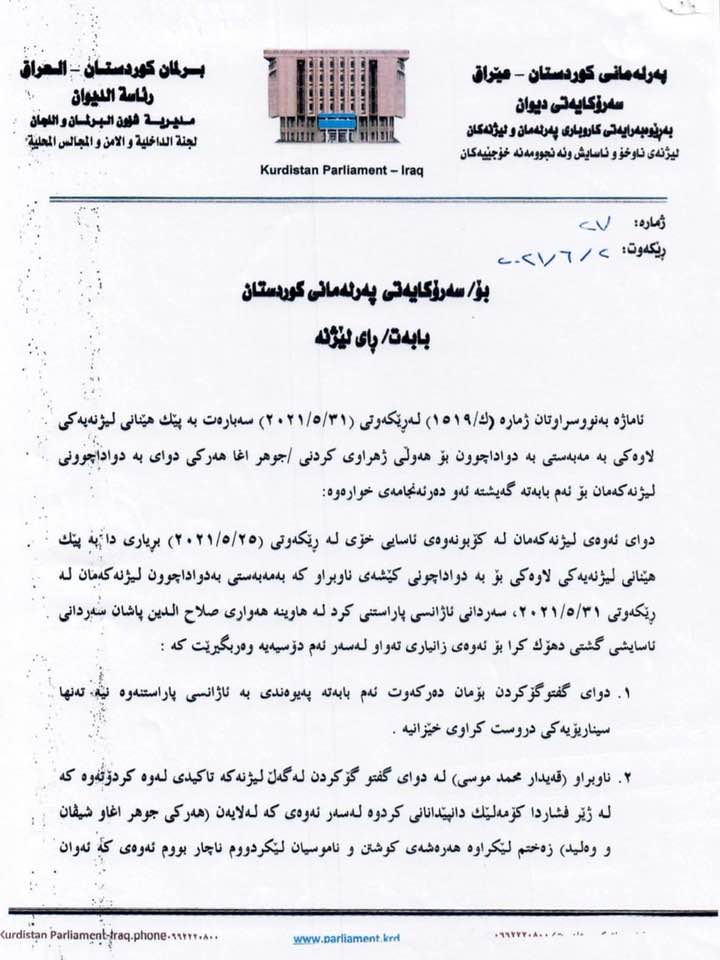 پەرلەمانی کوردستان – عێراق
سەرۆکایەتی دیوان
بەڕێوبەرایەتی کاروباری پەرلەمان و لیژنەکان
لیژنەی ناوخۆ و ئاسایش ونە نجوومەنە خۆجێیەکان
برلمان كوردستان – العراق
رئاسة الديوان
مديرية شؤون البرلمان و اللجان
لجنة الداخلية و الامن و المجالس المحلية
Kurdistan Parliament – Iraq
ژمارە: ٢٧
ڕێکەوت: ٢٠٢١/٦/٢
بۆ/ سەرۆکایەتی پەرلەمانی کوردستان
بابەت/ ڕای لێژنە
ئاماژە بەنووسراوتان ژمارە (ك/١٥١٩) لەڕێکەوتی (٢٠٢١/٥/٣١) سەبارەت بە پێك هێنانی لیژنەیەکی
لاوەکی بە مەبەستی بە دواداچوون بۆ هەوڵی ژهراوی کردنی /جوهر اغا هەرکی دوای بە دواداچوونی
لیژنەکەمان بۆ ئەم بابەتە گەیشتە ئەو دەرئەنجامەی خوارەوە:
دوای ئەوەی لیژنەکەمان لە کۆبونەوەی ئاسایی خۆی لە ڕێکەوتی (٢٠٢١/٥/٢٥) بڕیاری دا بە پێك
هێنانی لیژنەیەکی لاوەکی بۆ بە دواداچونی کێشەی ناوبراو کە بەمەبەستی بەدواداچوون لیژنەکەمان لە
ڕێکەوتی ٢٠٢١/٥/٣١، سەردانی ئاژانسی پاراستنی کرد لە هاوینە هەواری صلاح الدین پاشان سەردانی
ئاسایشی گشتی دهۆك کرا بۆ ئەوەی زانیاری تەواو لەسەر ئەم دۆسیەیە وەربگیرێت کە :
١. دوای گفتوگۆکردن بۆمان دەرکەوت ئەم بابەتە پەیوەندی بە ئاژانسی پاراستنەوە نیە تەنها
سیناریۆیەکی دروست کراوی خێزانیە .
٢. ناوبراو (قەیدار محمد موسی) لە دوای گفتو گۆکردن لەگەڵ لیژنەکە تاکیدی لەوە کردۆتەوە کە
لە ژێر فشاردا کۆمەلێك دانپێدانانی کردوە لەسەر ئەوەی کە لەلایەن (هەرکی جوهر اغاو شیڤان
و وەلید) زەختم لێکراوە هەرەشەی کوشتن و ناموسیان لێکردووم ناچار بووم ئەوەی کە ئەوان
Kurdistan Parliament-Iraq.phone٠٩٩٢٢٢٠٨٠٠
www.parliament.krd